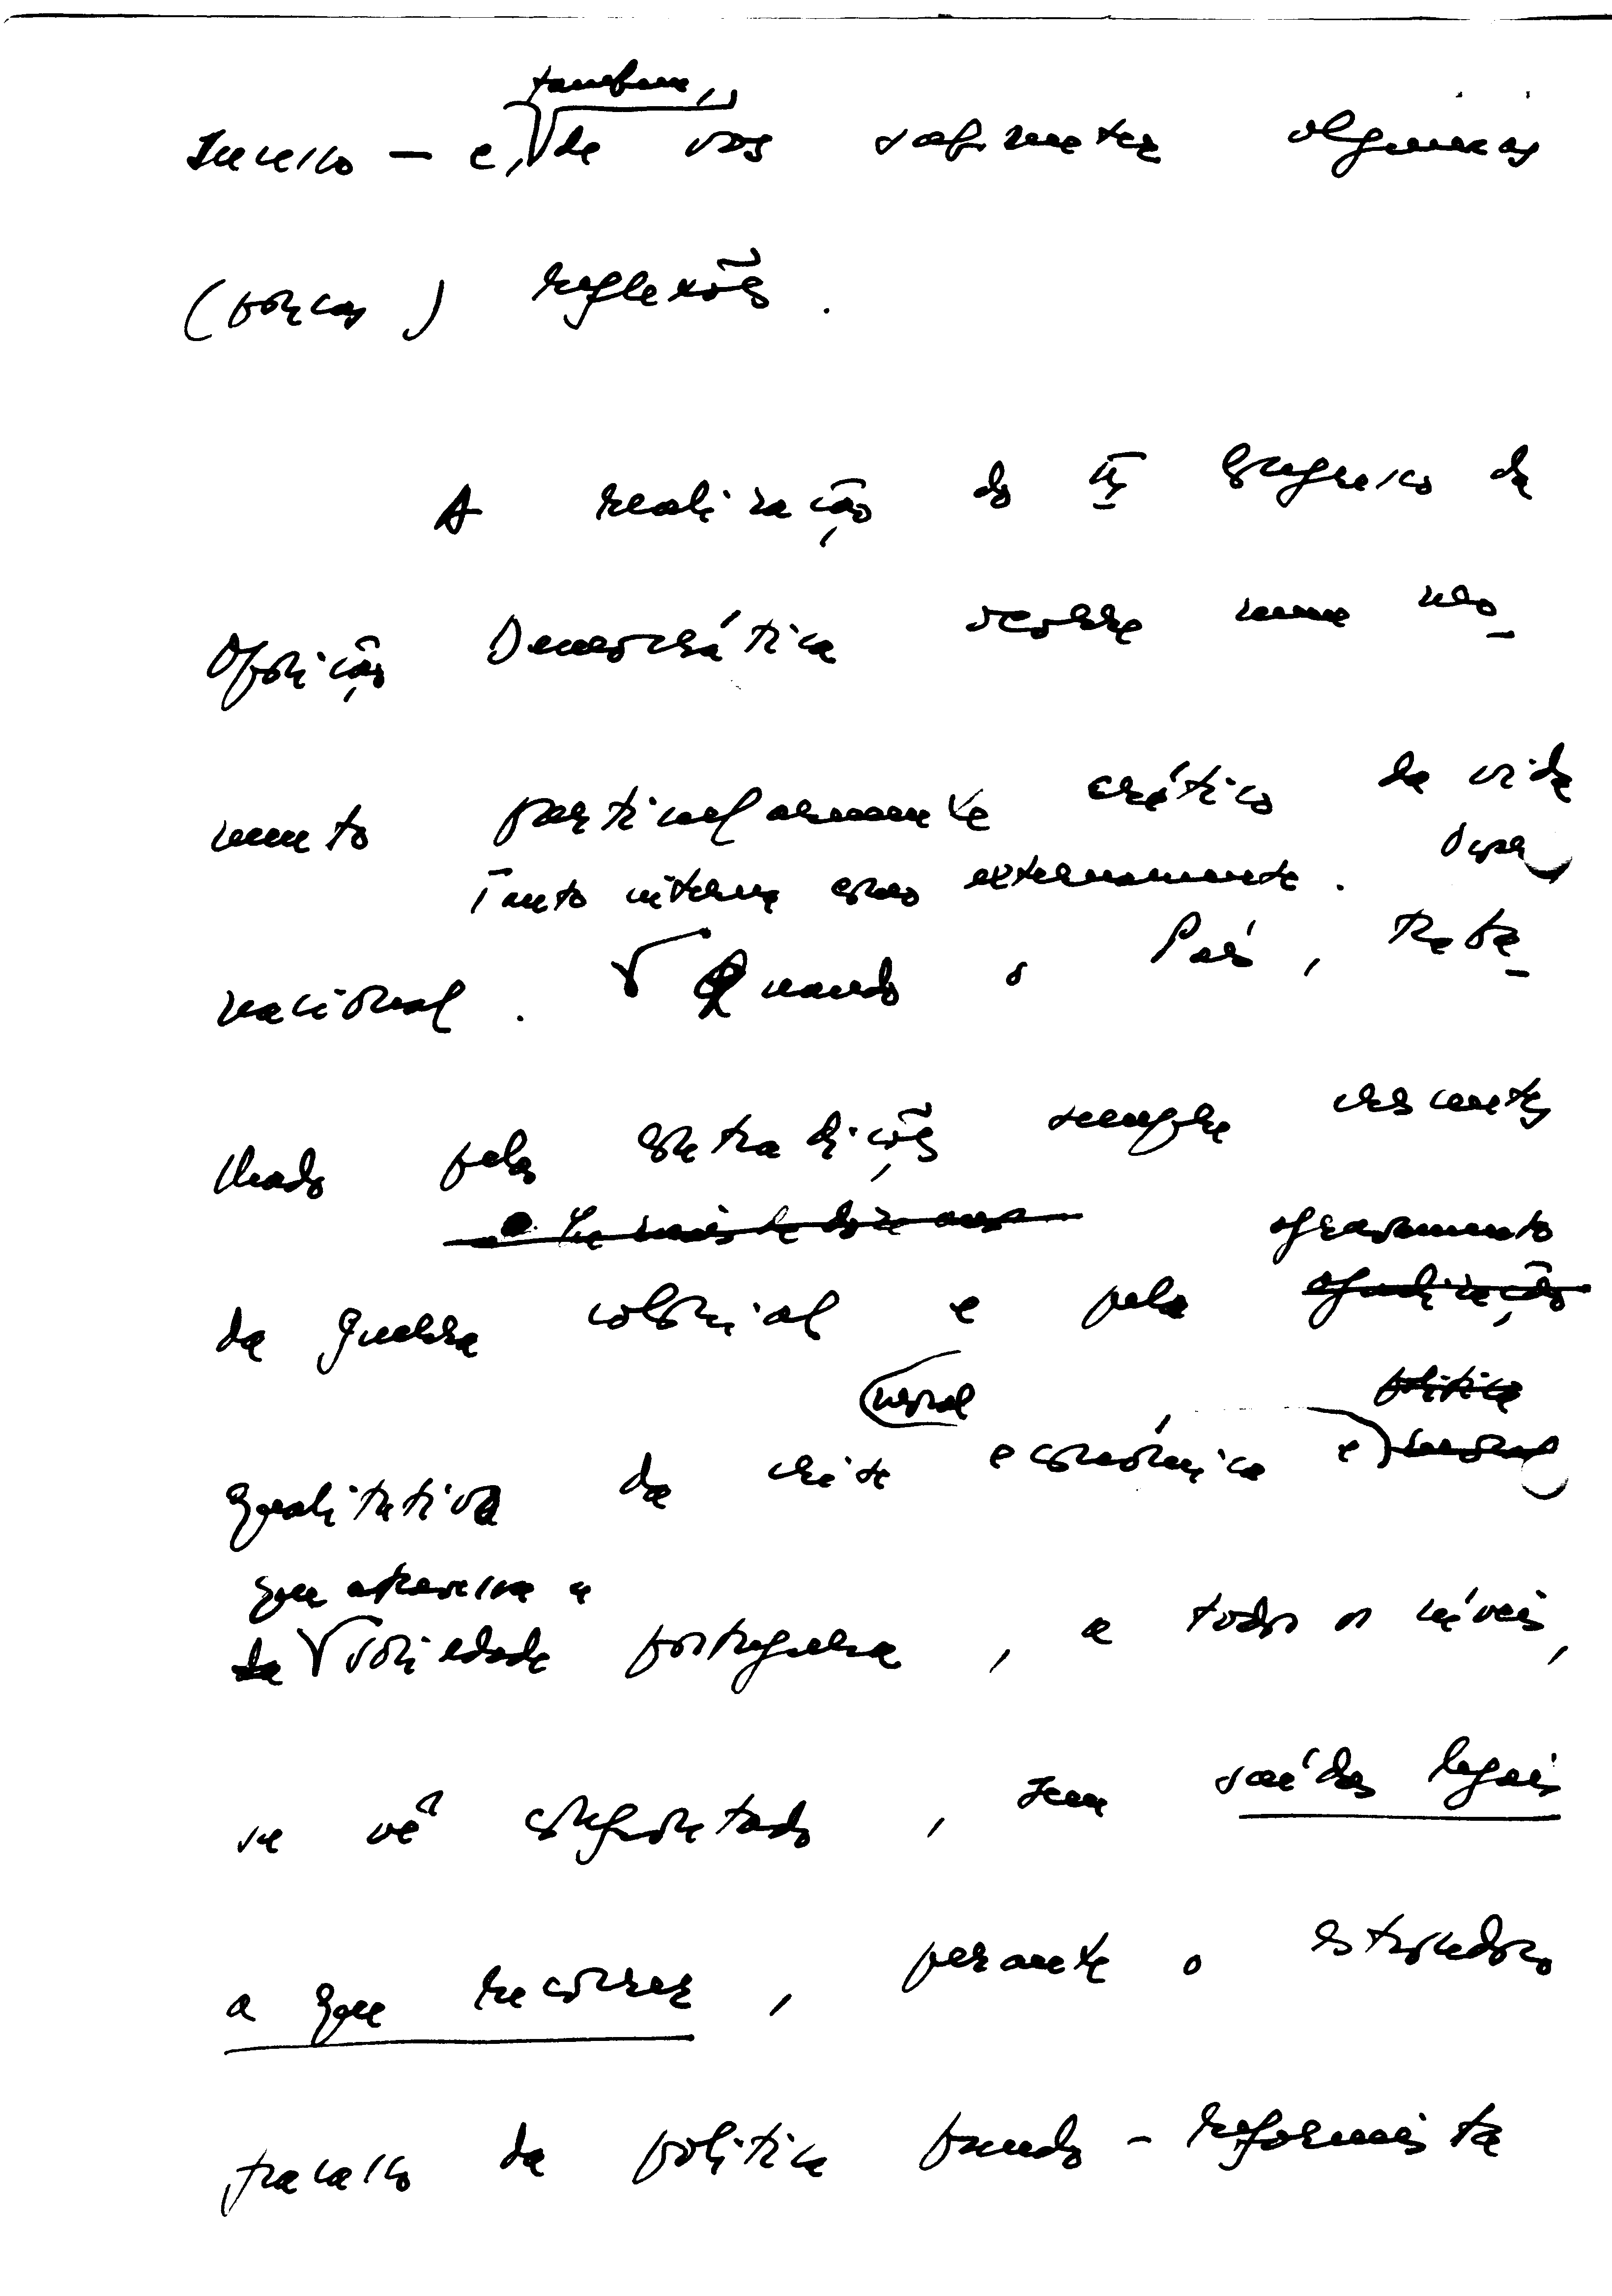 também,
sucesso — e, de vos submeter algumas
(poucas) reflexões.
A realização do III Congresso da
Oposição Democrática ocorre num mo-
mento particularmente crítico da vida
Tanto interna como externamente.
nacional. Quando o País, reta-
lhado pelas contradições sempre crescentes
de mais de doze anos agravamento
da guerra colonial e pela agudização
moral política
qualitativa da crise económica e moral
que atravessa a
da sociedade portuguesa, a todos os níveis,
se vê confrontado, sem saídas legais
a que recorrer, perante o estrondoso
fracasso da política pseudo-reformista